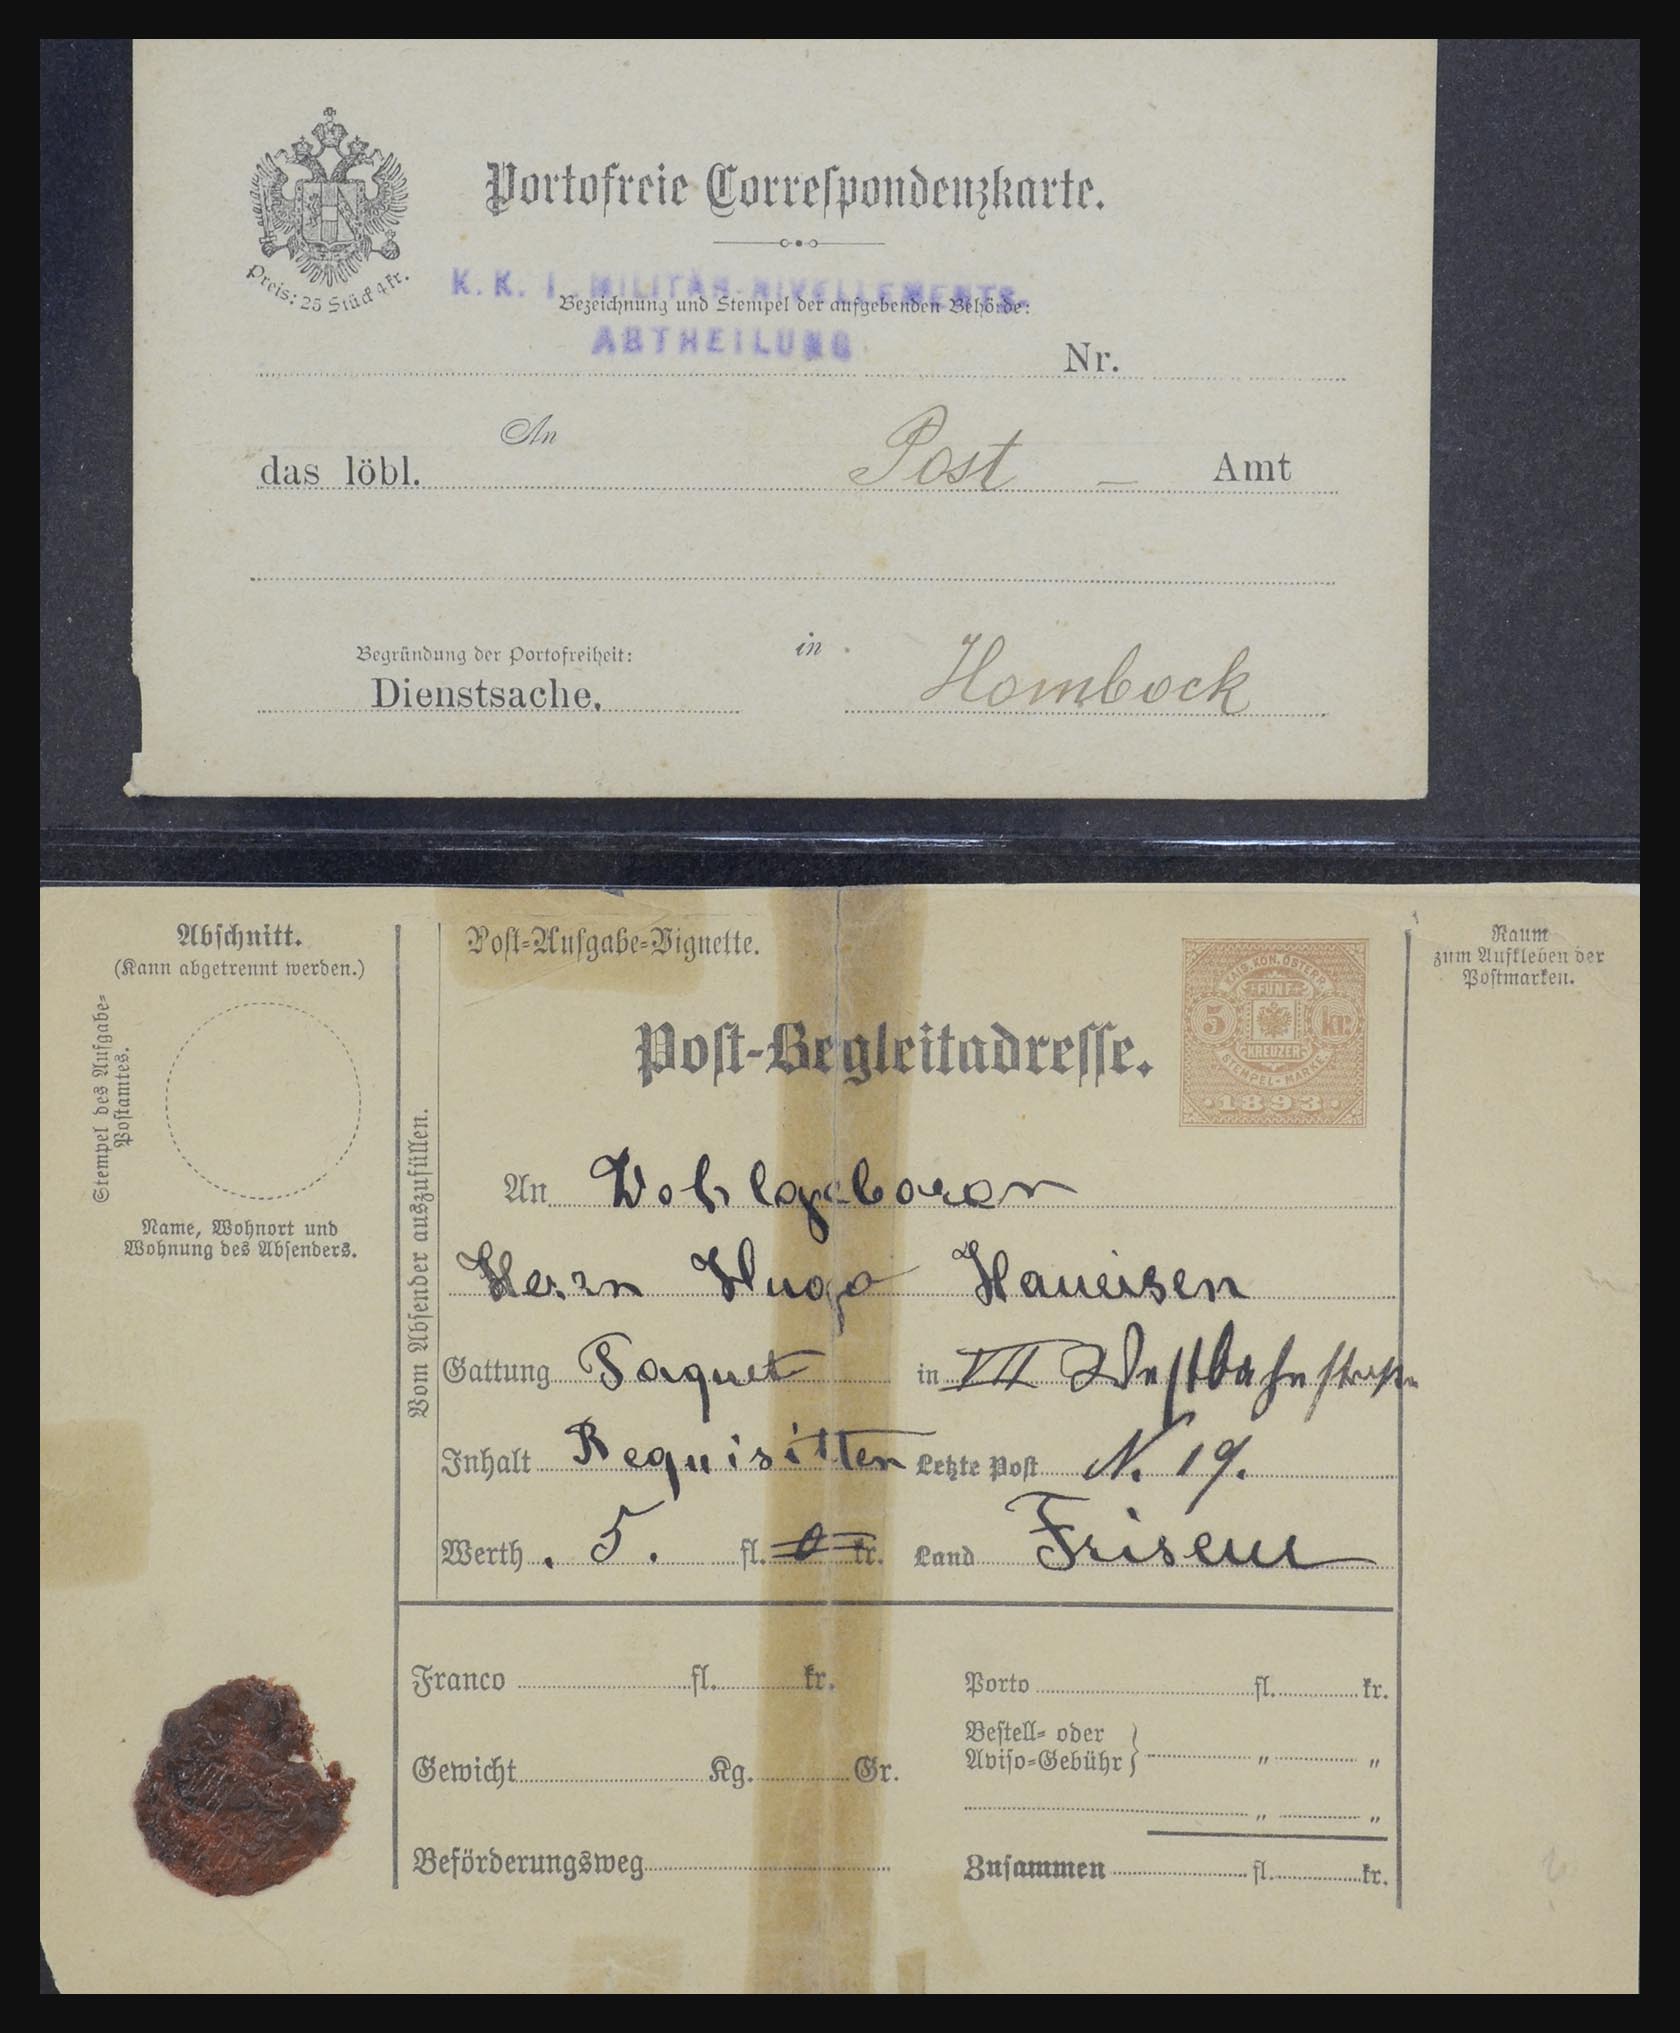 Portofreie Correspondenzkarte.
Preis: 25 Stück 4 kr.
K. K. I. MILITÄR-NIVELLEMENTS-
Bezeichnung und Stempel der aufgebenden Behörde:
ABTHEILUNG
Nr.
An
das löbl. Post - Amt
Begründung der Portofreiheit:
in
Dienstsache.
Hombock
Abschnitt.
(Kann abgetrennt werden.)
Stempel des Aufgabe-
Postamtes.
Name, Wohnort und
Wohnung des Absenders.
Vom Absender auszufüllen.
Post-Aufgabe-Vignette.
Post-Begleitadresse.
KAIS. KÖN. ÖSTERR.
FÜNF
5 kr.
KREUZER
STEMPEL-MARKE
·1893·
Raum
zum Aufkleben der
Postmarken.
An Wohlgeboren
Herrn Hugo Haueisen
Gattung Paquet in VII Westbahnstrasse
Inhalt Requisitten Letzte Post N. 19.
Werth . 5. fl. 0 kr. Land
Franco fl. kr. Porto fl. kr.
Bestell- oder
Aviso-Gebühr } " "
Gewicht Kg. Gr.
" "
Beförderungsweg Zusammen fl. kr.